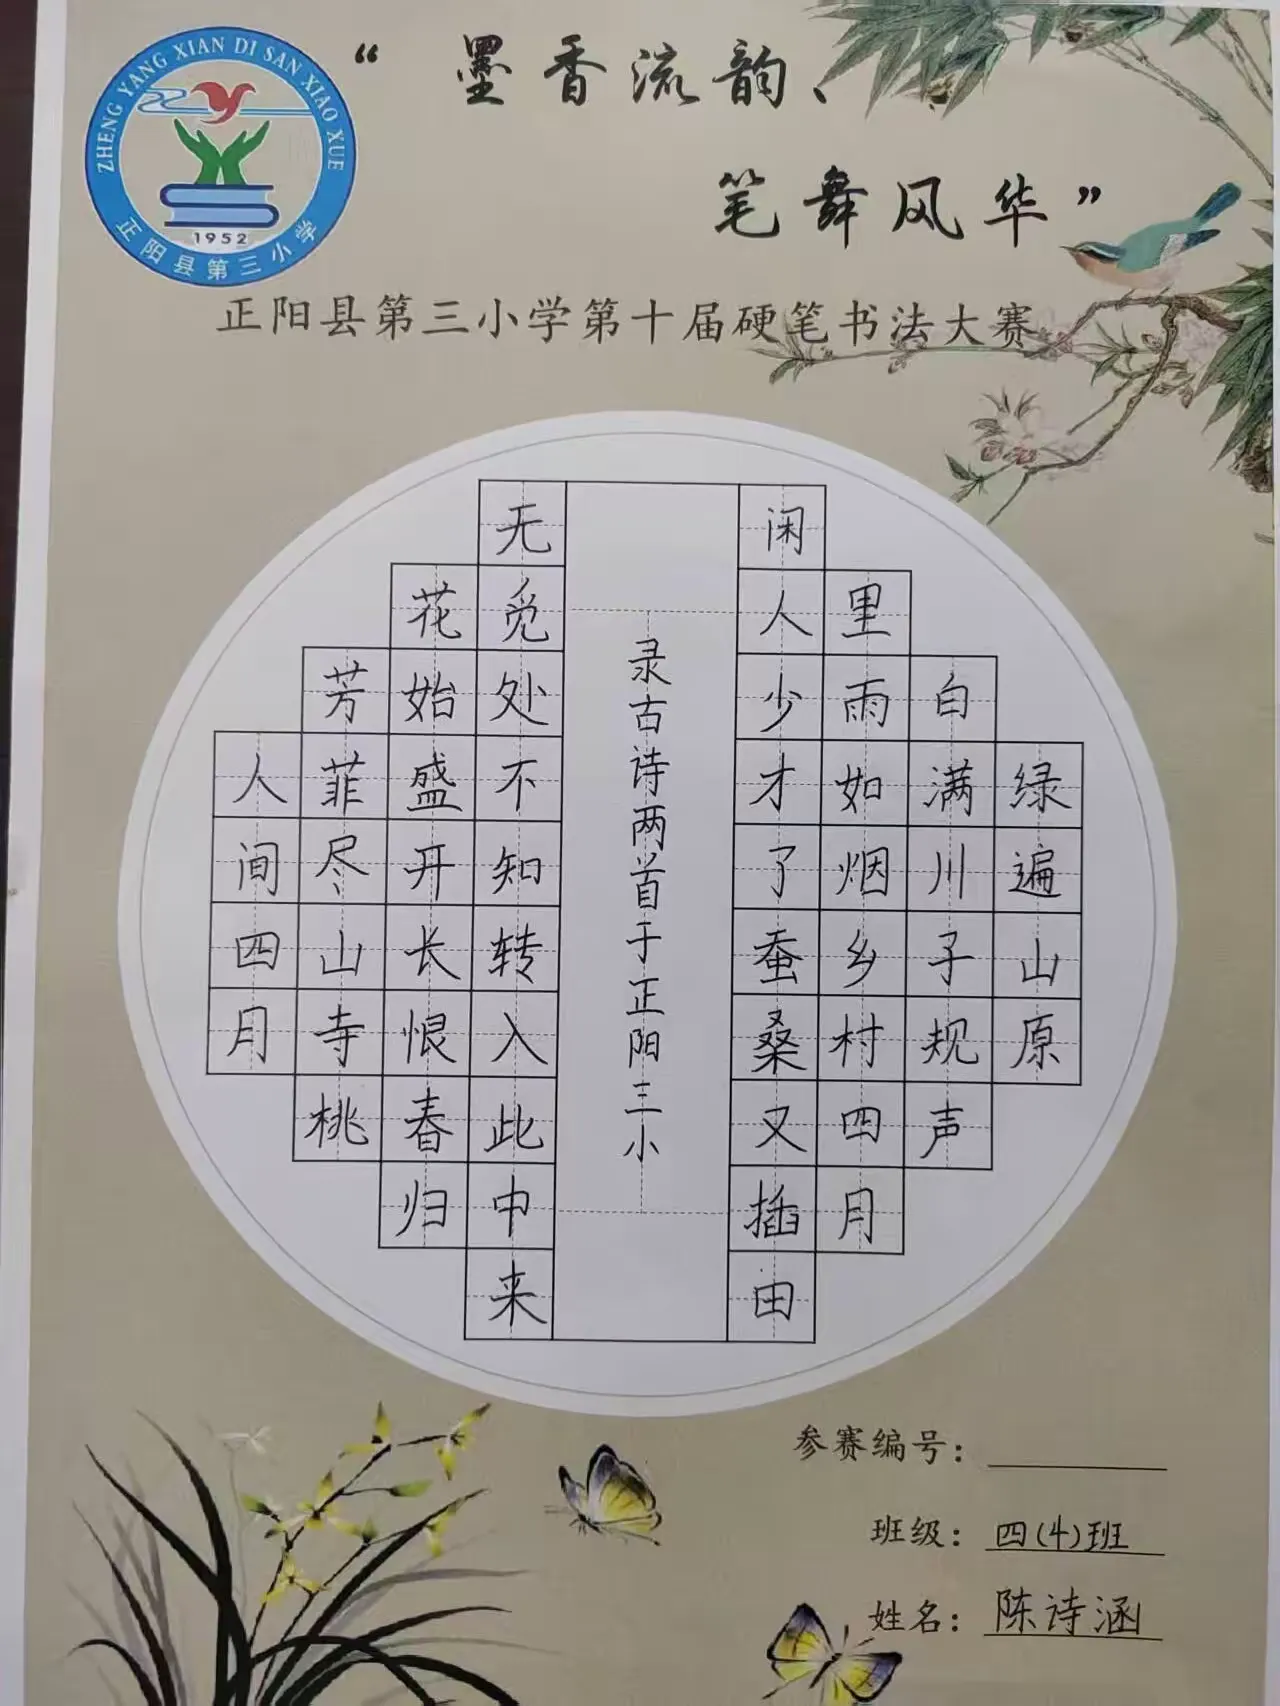 ZHENG YANG XIAN DI SAN XIAO XUE
1952
正阳县第三小学
“墨香流韵、
笔舞风华”
正阳县第三小学第十届硬笔书法大赛
绿遍山原
白满川子规声
里雨如烟乡村四月
闲人少才了蚕桑又插田
录古诗两首于正阳三小
无觅处不知转入此中来
花始盛开长恨春归
芳菲尽山寺桃
人间四月
参赛编号：
班级：四(4)班
姓名：陈诗涵